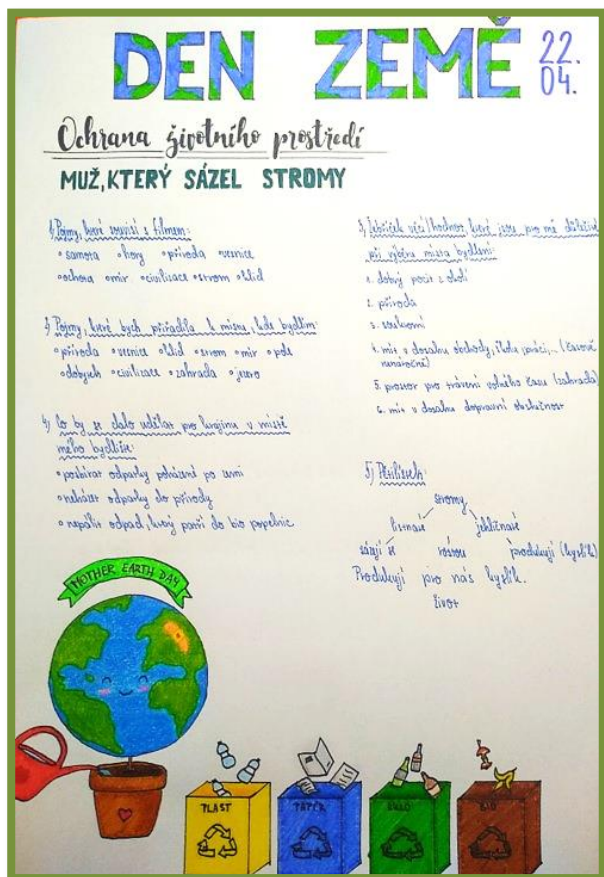 DEN ZEMĚ 22.
04.
Ochrana životního prostředí
MUŽ, KTERÝ SÁZEL STROMY
1) Pojmy, které souvisí s filmem:
° samota ° hory ° příroda ° vesnice
° ochota ° mír ° civilizace ° strom ° klid
2) Pojmy, které bych přiřadila k místu, kde bydlím:
° příroda ° vesnice ° klid ° strom ° mír ° pole
° dobytek ° civilizace ° zahrada °
4) Co by se dalo udělat pro krajinu v místě
mého bydliště:
° posbírat odpadky poházené po zemi
° neházet odpadky do přírody
° nepálit odpad, který patří do bio popelnice
3) Žebříček věcí/hodnot, které jsou pro mě důležité
při výběru místa bydlení:
1. dobrý pocit z okolí
2. příroda
3. soukromí
4. mít v dosahu obchody, školu, práci,... (časově
nenáročné)
5. prostor pro trávení volného času (zahrada)
6. mít v dosahu dopravní obslužnost
5) Pětilístek:
stromy
listnaté jehličnaté
sází se rostou produkují (kyslík)
Produkují pro nás kyslík.
život
MOTHER EARTH DAY
PLAST PAPÍR SKLO BIO